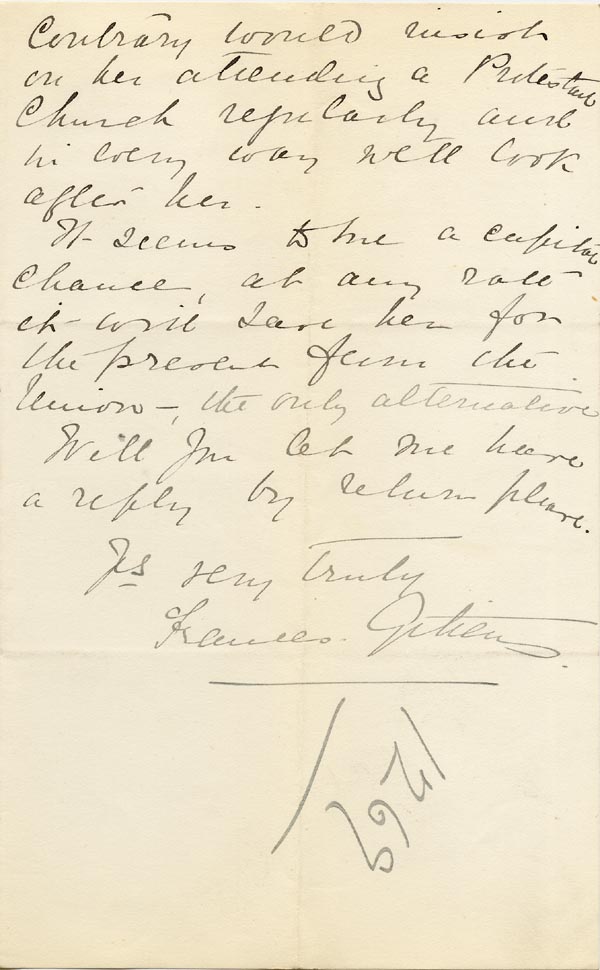 Contrary would insist
on her attending a Protestant
Church regularly and
in every way well look
after her.
It seems to me a capital
chance, at any rate
it will save her for
the present from the
Union -, the only alternative
Will you let me have
a reply by return please.
Yrs very truly
Frances